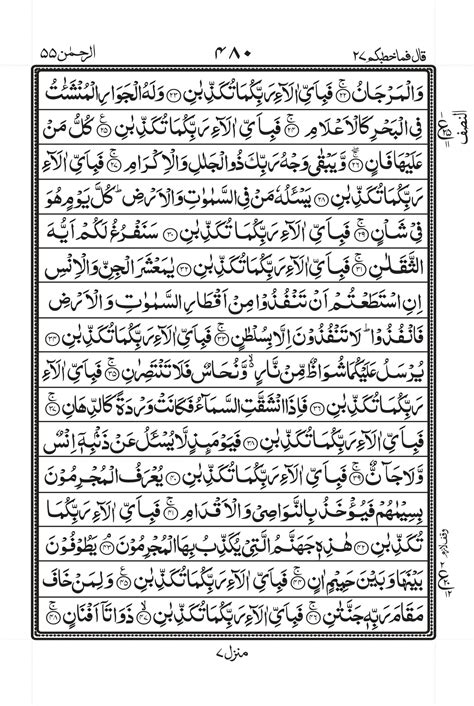 قال فما خطبكم ٢٧ ٤٨٠ الرحمٰن ٥٥
وَالْمَرْجَانُ ﴿٢٢﴾ فَبِاَيِّ اٰلَآءِ رَبِّكُمَا تُكَذِّبٰنِ ﴿٢٣﴾ وَلَهُ الْجَوَارِ الْمُنْشَئٰتُ
فِي الْبَحْرِ كَالْاَعْلَامِ ﴿٢٤﴾ فَبِاَيِّ اٰلَآءِ رَبِّكُمَا تُكَذِّبٰنِ ﴿٢٥﴾ كُلُّ مَنْ
عَلَيْهَا فَانٍ ﴿٢٦﴾ وَّيَبْقٰى وَجْهُ رَبِّكَ ذُو الْجَلٰلِ وَالْاِكْرَامِ ﴿٢٧﴾ فَبِاَيِّ اٰلَآءِ
رَبِّكُمَا تُكَذِّبٰنِ ﴿٢٨﴾ يَسْـَٔلُهٗ مَنْ فِي السَّمٰوٰتِ وَالْاَرْضِ ؕ كُلَّ يَوْمٍ هُوَ
فِيْ شَاْنٍ ﴿٢٩﴾ فَبِاَيِّ اٰلَآءِ رَبِّكُمَا تُكَذِّبٰنِ ﴿٣٠﴾ سَنَفْرُغُ لَكُمْ اَيُّهَ
الثَّقَلٰنِ ﴿٣١﴾ فَبِاَيِّ اٰلَآءِ رَبِّكُمَا تُكَذِّبٰنِ ﴿٣٢﴾ يٰمَعْشَرَ الْجِنِّ وَالْاِنْسِ
اِنِ اسْتَطَعْتُمْ اَنْ تَنْفُذُوْا مِنْ اَقْطَارِ السَّمٰوٰتِ وَالْاَرْضِ
فَانْفُذُوْا ؕ لَا تَنْفُذُوْنَ اِلَّا بِسُلْطٰنٍ ﴿٣٣﴾ فَبِاَيِّ اٰلَآءِ رَبِّكُمَا تُكَذِّبٰنِ ﴿٣٤﴾
يُرْسَلُ عَلَيْكُمَا شُوَاظٌ مِّنْ نَّارٍ ۙ وَّنُحَاسٌ فَلَا تَنْتَصِرٰنِ ﴿٣٥﴾ فَبِاَيِّ اٰلَآءِ
رَبِّكُمَا تُكَذِّبٰنِ ﴿٣٦﴾ فَاِذَا انْشَقَّتِ السَّمَآءُ فَكَانَتْ وَرْدَةً كَالدِّهَانِ ﴿٣٧﴾
فَبِاَيِّ اٰلَآءِ رَبِّكُمَا تُكَذِّبٰنِ ﴿٣٨﴾ فَيَوْمَئِذٍ لَّا يُسْـَٔلُ عَنْ ذَنْۢبِهٖٓ اِنْسٌ
وَّلَا جَآنٌّ ﴿٣٩﴾ فَبِاَيِّ اٰلَآءِ رَبِّكُمَا تُكَذِّبٰنِ ﴿٤٠﴾ يُعْرَفُ الْمُجْرِمُوْنَ
بِسِيْمٰهُمْ فَيُؤْخَذُ بِالنَّوَاصِيْ وَالْاَقْدَامِ ﴿٤١﴾ فَبِاَيِّ اٰلَآءِ رَبِّكُمَا
تُكَذِّبٰنِ ﴿٤٢﴾ هٰذِهٖ جَهَنَّمُ الَّتِيْ يُكَذِّبُ بِهَا الْمُجْرِمُوْنَ ﴿٤٣﴾ يَطُوْفُوْنَ
بَيْنَهَا وَبَيْنَ حَمِيْمٍ اٰنٍ ﴿٤٤﴾ فَبِاَيِّ اٰلَآءِ رَبِّكُمَا تُكَذِّبٰنِ ﴿٤٥﴾ وَلِمَنْ خَافَ
مَقَامَ رَبِّهٖ جَنَّتٰنِ ﴿٤٦﴾ فَبِاَيِّ اٰلَآءِ رَبِّكُمَا تُكَذِّبٰنِ ﴿٤٧﴾ ذَوَاتَآ اَفْنَانٍ ﴿٤٨﴾
النصف
منزل ٧